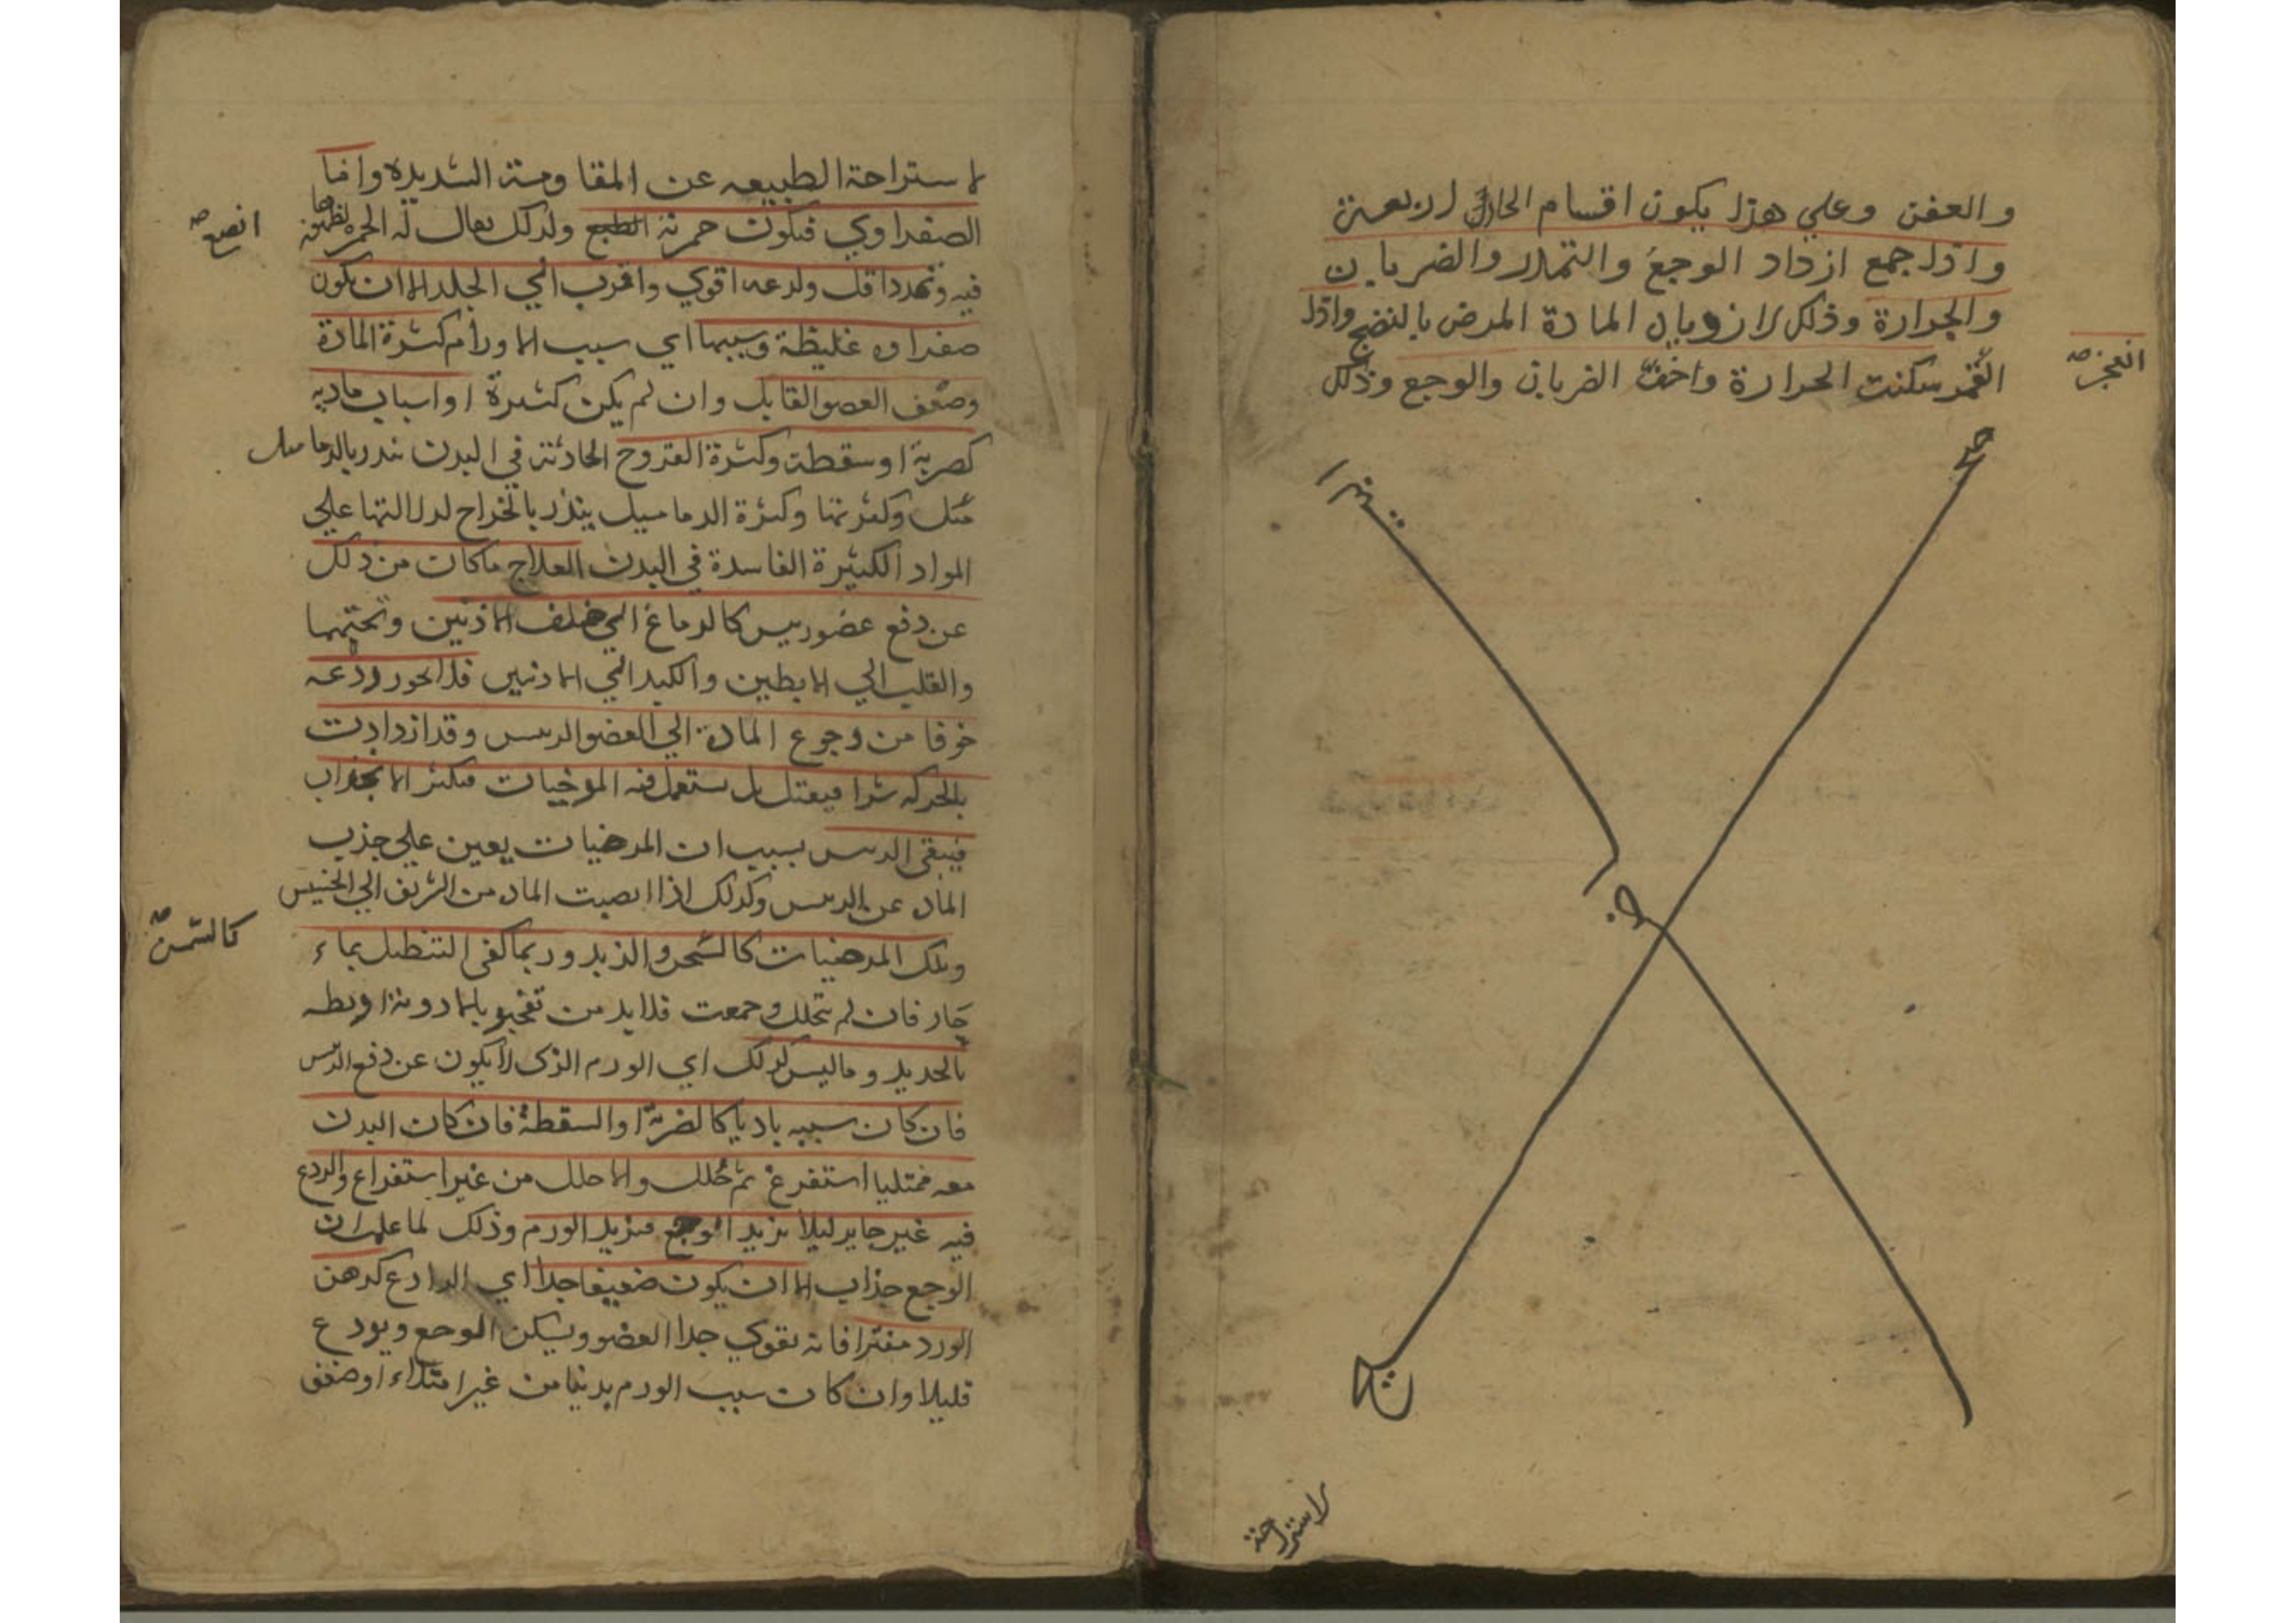 والعفن وعلي هذا يكون اقسام الحار اربعة
واذا جمع ازداد الوجع والتمدد والضربان
والحرارة وذلك لان وبال المادة المرض بالنضج واذا
انفجر سكنت الحرارة واخف الضربان والوجع وذلك
انفجر صح
لاستراحة
لاستراحة الطبيعه عن المقاومة الشديده واما
الصفراوي فيكون حمرته الطبع ولذلك يقال له الحمره
انصع صح
فيه وتمدده اقل ولذعه اقوي واقرب الي الجلد الا ان يكون
صفراوه غليظة وسببها اي سبب الاورام كثرة المادة
وضعف العضو القابل وان لم يكن كثيرة او اسباب ماديه
كضربة او سقطة وكثرة القروح الحادثة في البدن تنذر بالدماميل
مثل وكثرتها وكثرة الدماميل ينذر بالخراج لدلالتها علي
المواد الكثيرة الفاسدة في البدن العلاج ما كان من ذلك
عن دفع عضو ريس كالدماغ الي خلف الاذنين وتحتهما
والقلب الي الابطين والكبد الي الاذنين فلا يجوز ردعه
خوفا من رجوع المادة الي العضو الريس وقد ازدادت
بالحركه شرا فيقتل بل يستعمل فيه المرخيات فيكثر الانجذاب
فيبقي الريس بسبب ان المرخيات يعين علي جذب
الماده عن الريس وكذلك اذا انصبت الماده من الشريف الي الخسيس
وتلك المرخيات كالشحن والزبد وربما كفي التنطيل بماء
كالسمن صح
حار فان لم يتحلل وجمعت فلا بد من تفجير بالادوية او بطه
بالحديد وما ليس كذلك اي الورم الذي لا يكون عن دفع الريس
فان كان سببه باديا كالضربة او السقطة فان كان البدن
معه ممتليا استفرغ ثم حلل والا حلل من غير استفراغ والردع
فيه غير جايز ليلا يزيد الوجع فيزيد الورم وذلك لما علمت ان
الوجع جذاب الا ان يكون ضعيفا جدا اي الرادع كدهن
الورد مفترا فانه يقوي جدا العضو ويسكن الوجع ويردع
قليلا وان كان سبب الورم بدنيا من غير امتلاء او ضعف